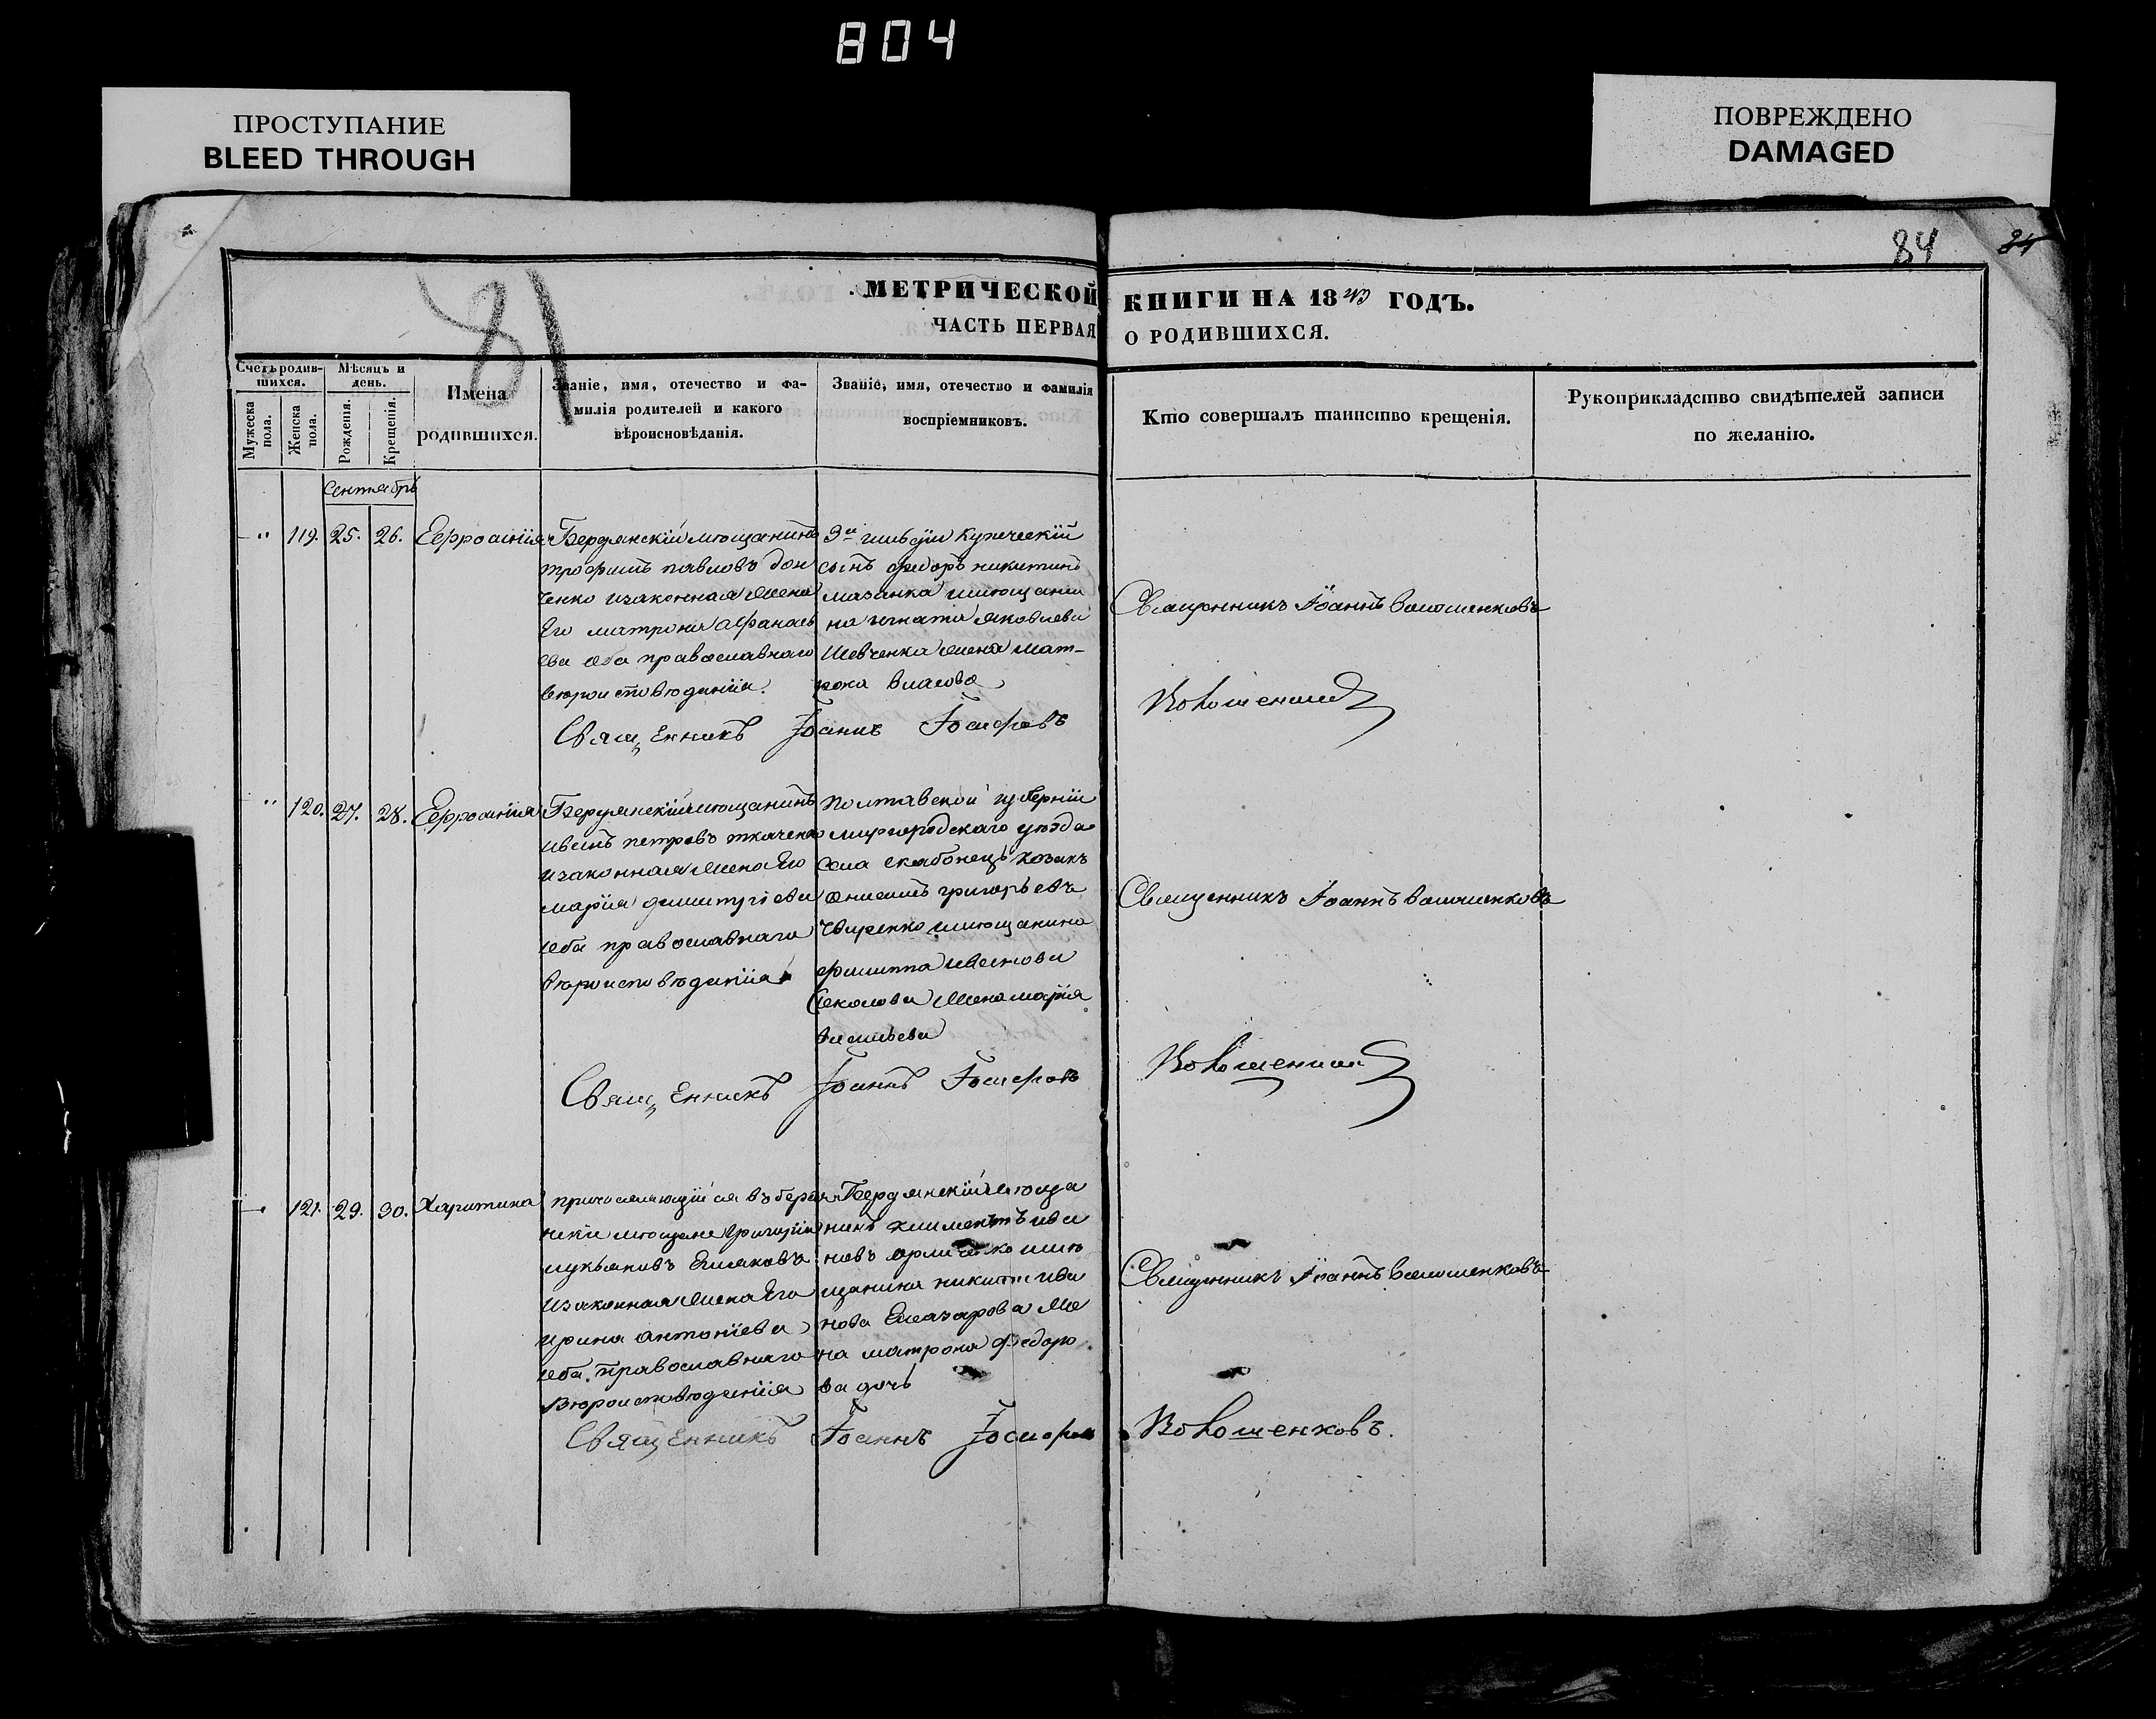 804
ПРОСТУПАНИЕ
BLEED THROUGH
ПОВРЕЖДЕНО
DAMAGED
84
81
МЕТРИЧЕСКОЙ КНИГИ НА 18 ГОДЪ.
ЧАСТЬ ПЕРВАЯ О РОДИВШИХСЯ.
Счетъ родив-
шихся.
Мѣсяцъ и
день.
Мужеска
пола.
Женска
пола.
Рожденія.
Крещенія.
Имена
родившихся.
Званіе, имя, отечество и фа-
милія родителей и какого
вѣроисновѣданія.
Званіе, имя, отечество и фамилія
воспріемниковъ.
Кто совершалъ таинство крещенія.
Рукоприкладство свидѣтелей записи
по желанію.
Сентябрь
119. 25. 26. Евфросинія
Бердянскій мѣщанинъ
трофимъ павловъ дон
ченко изаконная жена
Его матрона афанась
ева оба православнаго
вѣроисповѣданія.
3й гильдіи Купеческій
сынъ федоръ никитинъ
мазанка имѣщани
на игната яковлева
Шевченка жена мат-
рона власова
Священникъ Іоаннъ Волошенковъ
Священникъ Іоаннъ Іосифовъ
120. 27. 28. Евфросинія
Бердянскій мѣщанинъ
иванъ петровъ ткаченко
изаконная жена Его
марія димитріева
оба православнаго
вѣроисповѣданія
Полтавской губерніи
миргородскаго уѣзда
села козакъ
григорьевъ
имѣщанина
филиппа иванова
Соколова жена марія
васильева
Священникъ Іоаннъ Волошенковъ
Священникъ Іоаннъ Іосифовъ
121. 29. 30. Харитина
причисляющійся въ бердян
скіе мѣщане григорій
лукьяновъ
изаконная жена Его
ирина антоніева
оба православнаго
вѣроисповѣданія
Бердянскій мѣща
нинъ климентъ ива
новъ имѣ
щанина никиты ива
нова же
на матрона федоро
ва дочь
Священникъ Іоаннъ Волошенковъ
Священникъ Іоаннъ Іосифовъ
Волошенковъ.